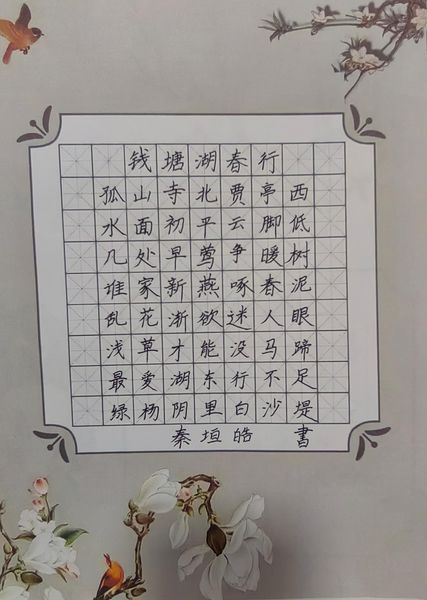 钱塘湖春行
孤山寺北贾亭西
水面初平云脚低
几处早莺争暖树
谁家新燕啄春泥
乱花渐欲迷人眼
浅草才能没马蹄
最爱湖东行不足
绿杨阴里白沙堤
秦垣皓 書